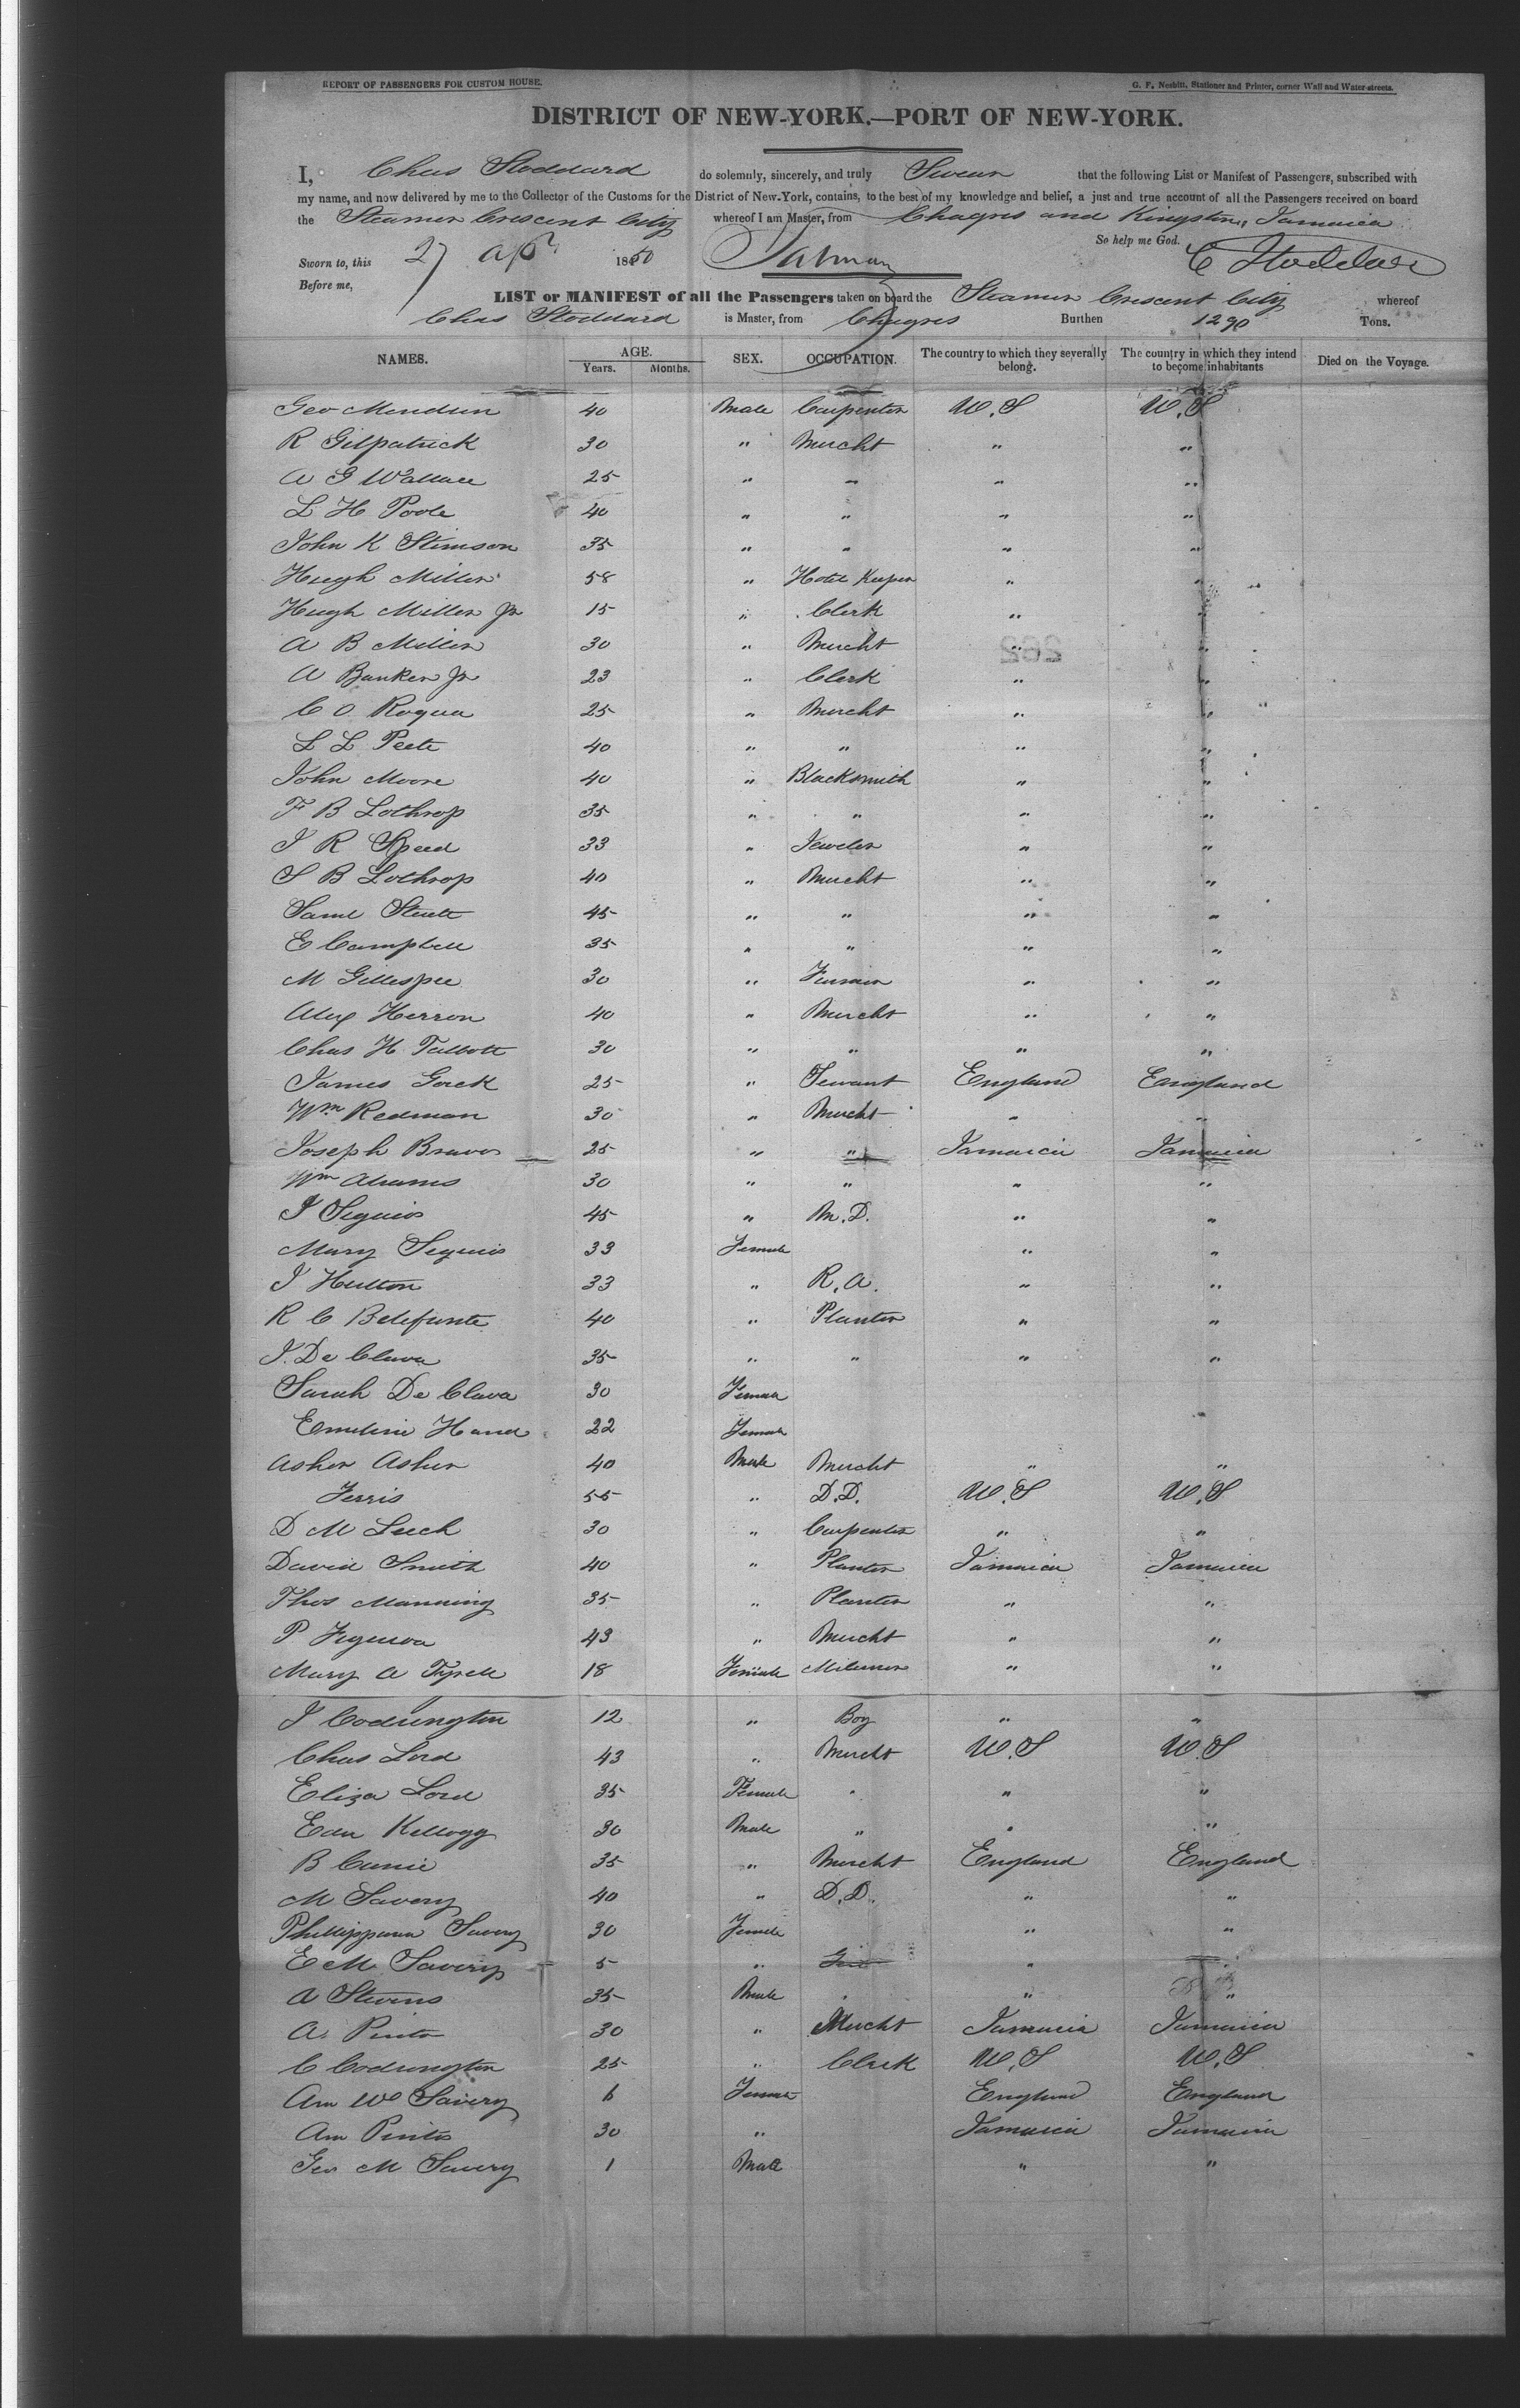 REPORT OF PASSENGERS FOR CUSTOM HOUSE.
G. F. Nesbitt, Stationer and Printer, corner Wall and Water-streets.
DISTRICT OF NEW-YORK.—PORT OF NEW-YORK.
I, Chas Stoddard do solemnly, sincerely, and truly Swear that the following List or Manifest of Passengers, subscribed with
my name, and now delivered by me to the Collector of the Customs for the District of New-York, contains, to the best of my knowledge and belief, a just and true account of all the Passengers received on board
the Steamer Crescent City whereof I am Master, from Chagres and Kingston, Jamaica
So help me God. C Stoddard
Sworn to, this 27 Apr 1850
Before me,
LIST or MANIFEST of all the Passengers taken on board the Steamer Crescent City whereof
Chas Stoddard is Master, from Chagres Burthen 1290 Tons.
NAMES. AGE. Years. Months. SEX. OCCUPATION. The country to which they severally belong. The country in which they intend to become inhabitants Died on the Voyage.
Geo 40 Male Carpenter U.S U.S
R Gilpatrick 30 " Mercht " "
A G Wallace 25 " " " "
L H Poole 40 " " " "
John K Stimson 35 " " " "
Hugh Miller 58 " Hotel Keeper " "
Hugh Miller Jr 15 " Clerk " "
A B Miller 30 " Mercht " "
A Banker Jr 23 " Clerk " "
C O Roqua 25 " Mercht " "
L L Peete 40 " " " "
John Moore 40 " Blacksmith " "
F B Lothrop 35 " " " "
J R Speed 33 " Jeweler " "
S B Lothrop 40 " Mercht " "
Saml 45 " " " "
E Campbell 35 " " " "
M Gillespee 30 " Farmer " "
Alex Herron 40 " Mercht " "
Chas H Talbott 30 " " " "
James 25 " Servant England England
Wm Redman 30 " Mercht " "
Joseph Bravo 25 " " Jamaica Jamaica
Wm Abrams 30 " " " "
J 45 " M.D. " "
Mary 33 Female " "
J Hutton 33 " R.A. " "
R C 40 " Planter " "
J. De Clava 35 " " " "
Sarah De Clava 30 Female
Emeline Hand 22 Female
Asher Asher 40 Male Mercht " "
Ferris 55 " D.D. U.S U.S
D M Leech 30 " Carpenter " "
David Smith 40 " Planter Jamaica Jamaica
Thos Manning 35 " Planter " "
P 43 " Mercht " "
Mary A Tyrell 18 Female Milener " "
J Codrington 12 " Boy " "
Chas Lord 43 " Mercht U.S U.S
Eliza Lord 35 Female " " "
Edw Kellogg 30 Male " " "
B 35 " Mercht England England
M Savery 40 " D.D. " "
Phillippana Savery 30 Female " "
E M Savery 5 " " "
A Stevens 35 Male " " "
A. Pinto 30 " Mercht Jamaica Jamaica
C Codrington 25 " Clerk U.S U.S
Ann W Savery 6 Female England England
Ann Pinto 30 " Jamaica Jamaica
Geo M Savery 1 Male " "